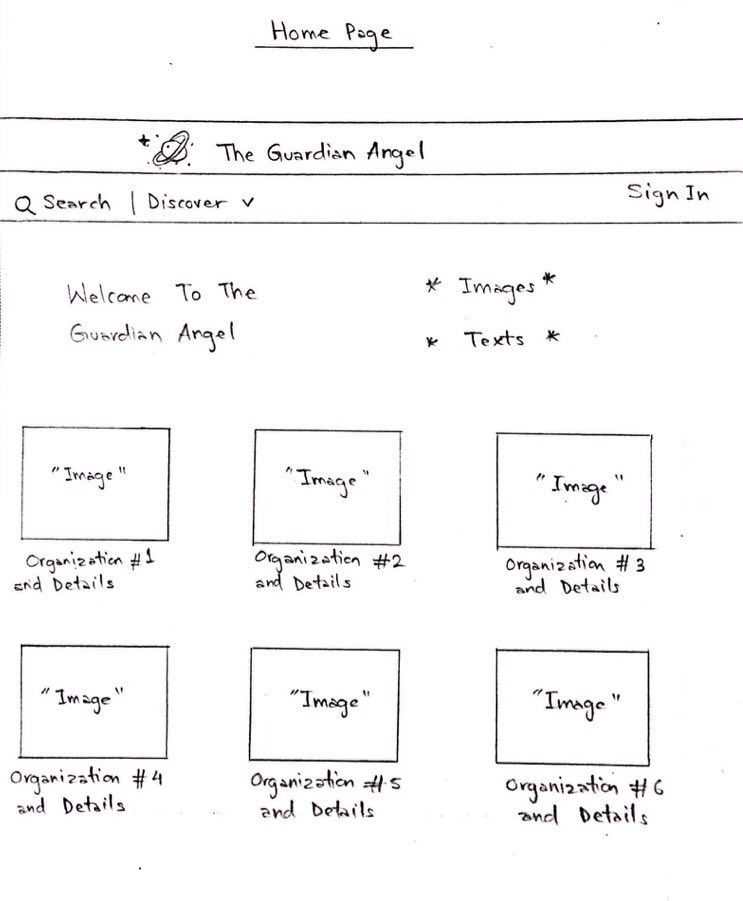 Home Page
The Guardian Angel
Search | Discover v
Sign In
Welcome To The
Guardian Angel
* Images *
* Texts *
"Image"
"Image"
"Image"
Organization #1
and Details
Organization #2
and Details
Organization #3
and Details
"Image"
"Image"
"Image"
Organization #4
and Details
Organization #5
and Details
Organization #6
and Details